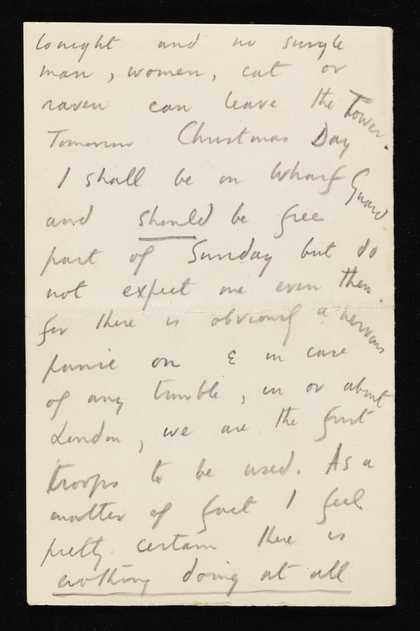 tonight and no single
man, women, cat or
raven can leave the Tower.
Tomorrow Christmas Day
I shall be on Wharf Guard
and should be free
part of Sunday but do
not expect me even then.
for there is obviously a nervous
panic on & in case
of any trouble, in or about
London, we are the first
troops to be used. As a
matter of fact I feel
pretty certain there is
nothing doing at all